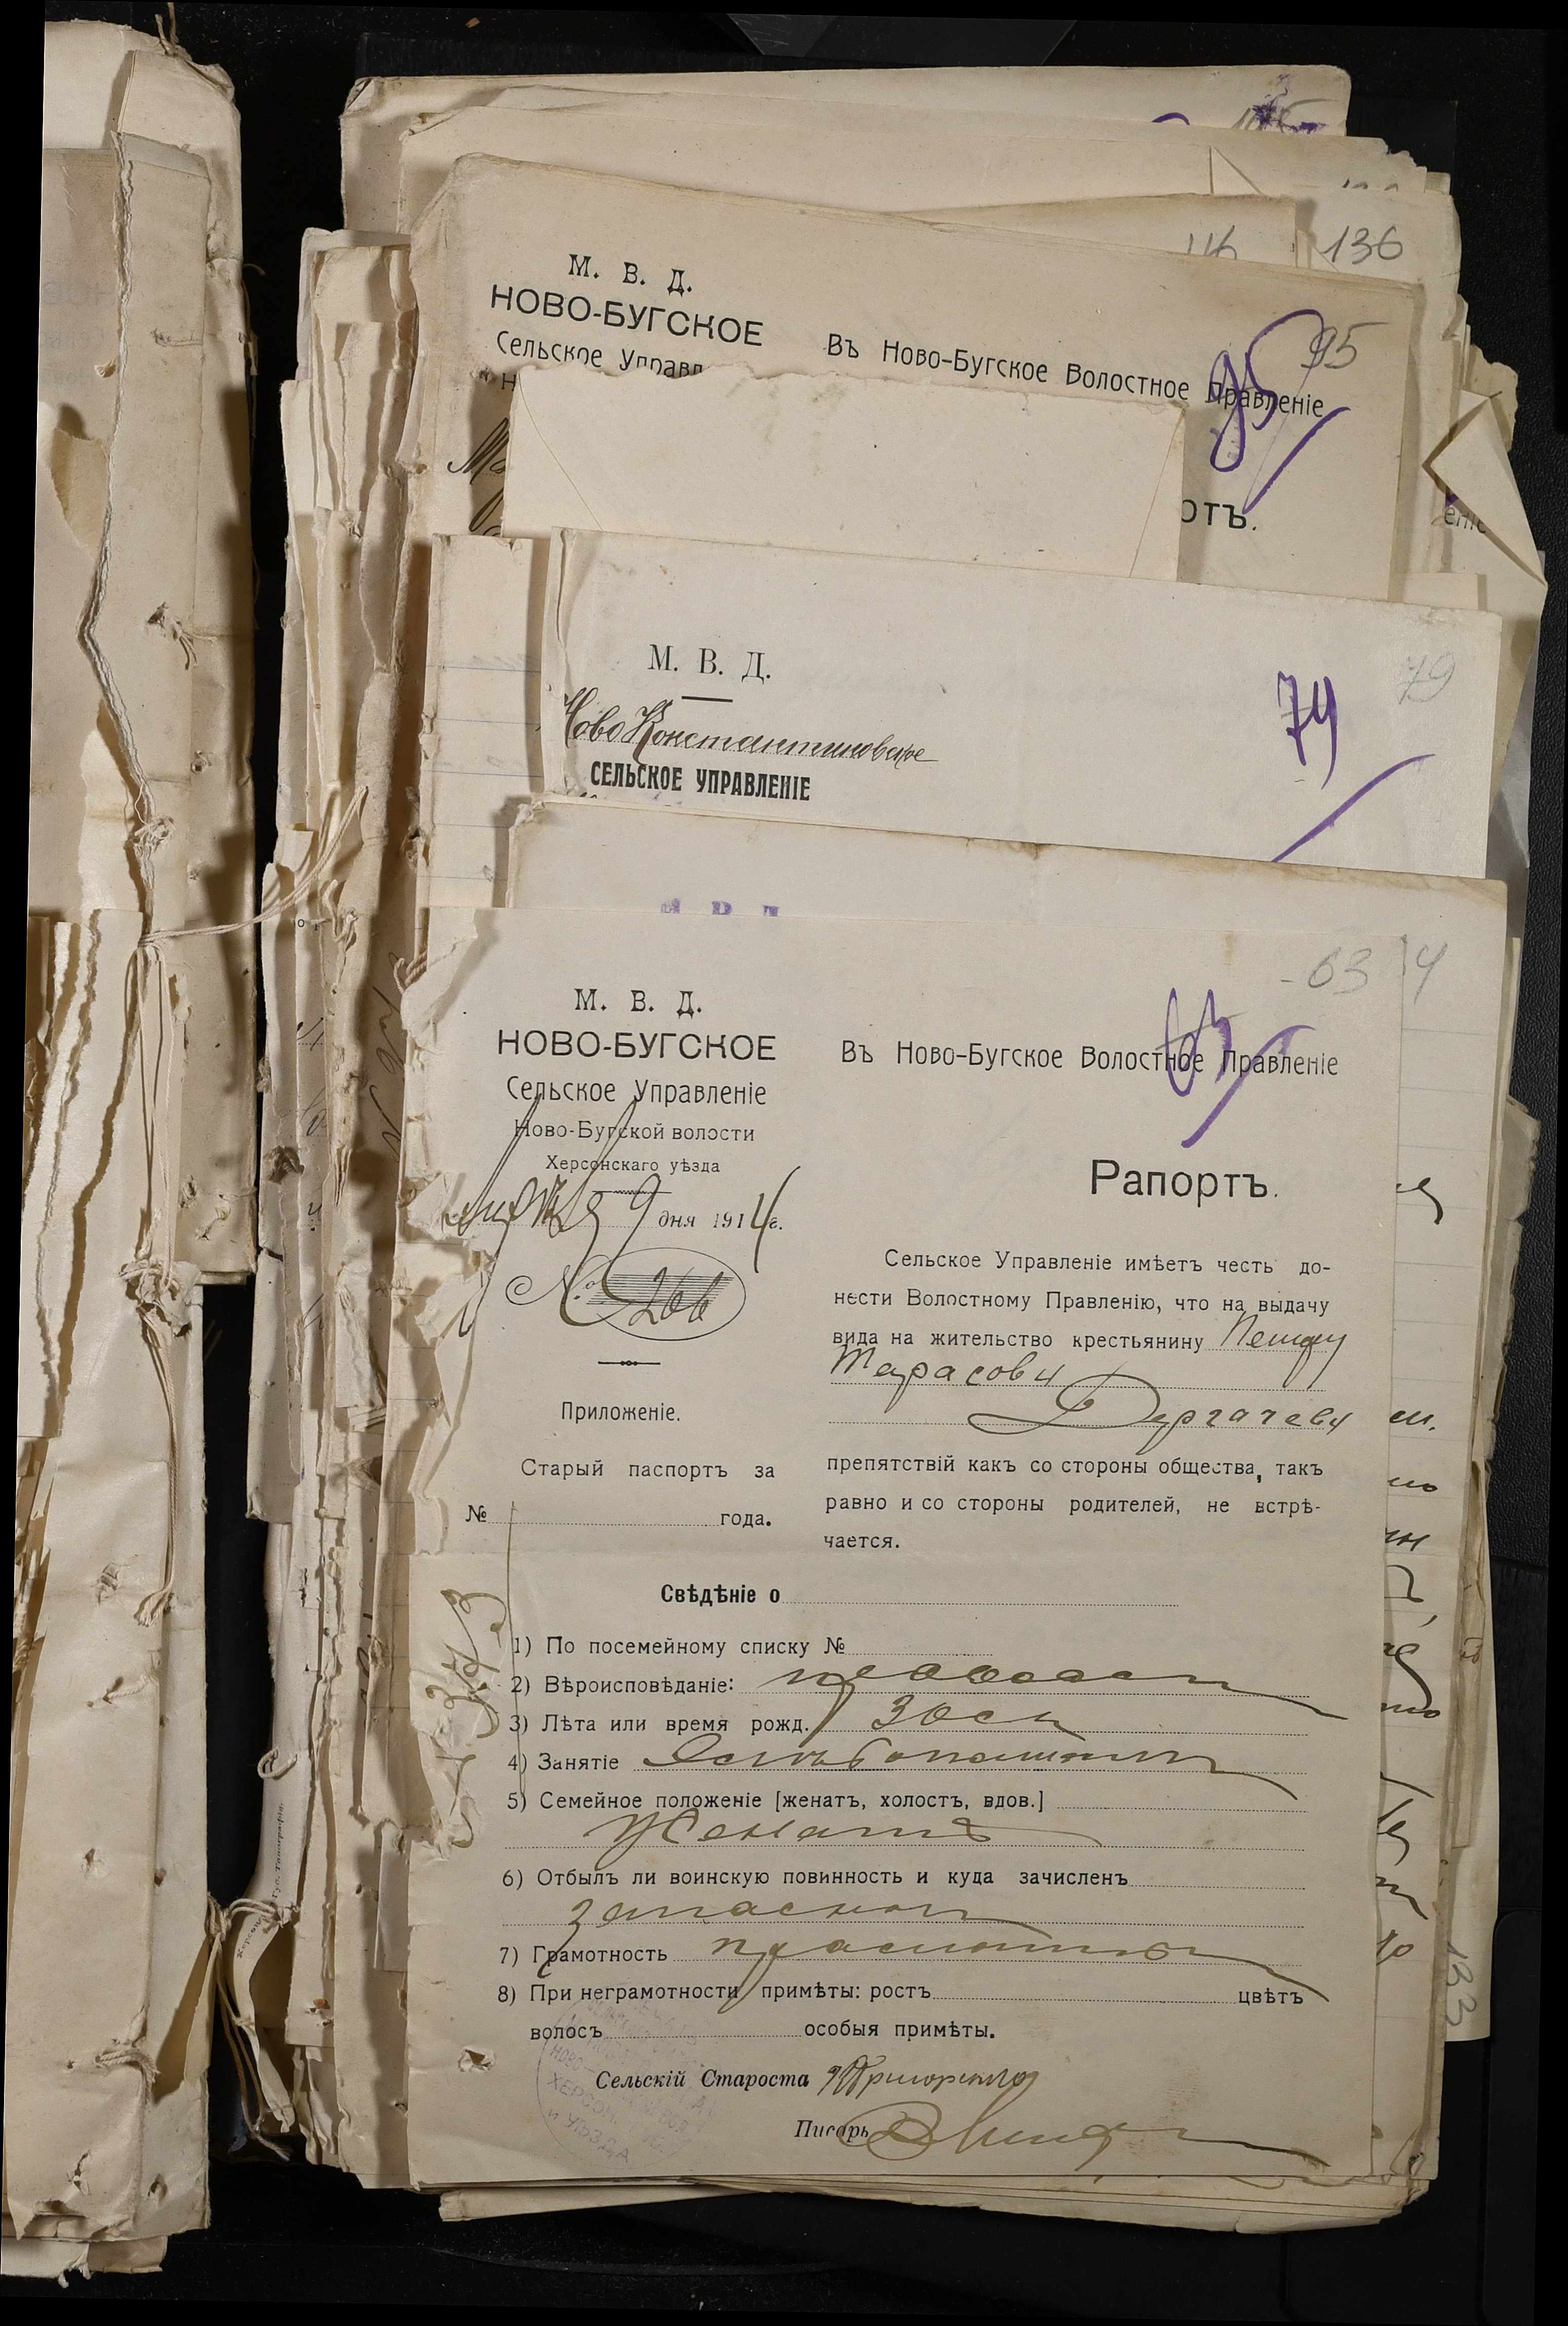 136
М. В. Д.
НОВО-БУГСКОЕ
Сельское Управл
Въ Ново-Бугское Волостное Правленіе
95
95
отъ.
еніе
М. В. Д.
Ново Константиновское
СЕЛЬСКОЕ УПРАВЛЕНІЕ
79
79
63
4
М. В. Д.
НОВО-БУГСКОЕ
Сельское Управленіе
Ново-Бугской волости
Херсонскаго уѣзда
9 дня 1914 г.
№ 266
Приложеніе.
Старый паспортъ за
№ года.
63
Въ Ново-Бугское Волостное Правленіе
Рапортъ.
Сельское Управленіе имѣетъ честь до-
нести Волостному Правленію, что на выдачу
вида на жительство крестьянину Петру
Тарасову
Дергачеву
препятствій какъ со стороны общества, такъ
равно и со стороны родителей, не встрѣ-
чается.
Свѣдѣніе о
1) По посемейному списку №
2) Вѣроисповѣданіе: православн
3) Лѣта или время рожд. 30
4) Занятіе
5) Семейное положеніе [женатъ, холостъ, вдов.]
Женатъ
6) Отбылъ ли воинскую повинность и куда зачисленъ
запасной
7) Грамотность
8) При неграмотности примѣты: ростъ цвѣтъ
волосъ особыя примѣты.
Сельскій Староста
Писарь
183